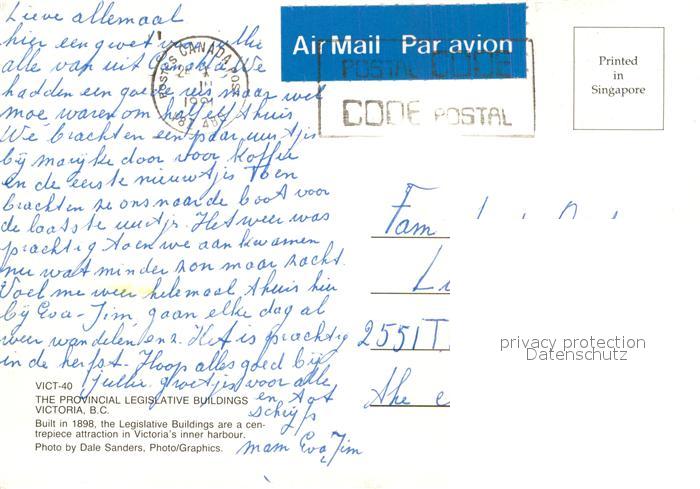 Lieve allemaal
hier een groet voor jullie
alle van uit Canada. We
hadden een goede reis maar wel
moe waren om half elf thuis
We brachten een paar uurtjes
bij marijke door voor koffie
en de eerste nieuwtjes Toen
brachten ze ons naar de boot voor
de laatste uurtjes. Het weer was
prachtig toen we aan kwamen
nu wat minder zon maar zacht.
Voel me weer helemaal thuis hier
bij Eva-Jim, gaan elke dag al
weer wandelen enz. Het is prachtig
in de herfst. Hoop alles goed bij
jullie. groetjes voor alle
en
schijf
mam Eva Jim
VICT-40
THE PROVINCIAL LEGISLATIVE BUILDINGS
VICTORIA, B.C.
Built in 1898, the Legislative Buildings are a cen-
trepiece attraction in Victoria's inner harbour.
Photo by Dale Sanders, Photo/Graphics.
POSTES CANADA POST
1991
Air Mail Par avion
POSTAL CODE
CODE POSTAL
Printed
in
Singapore
Fam
2551 T
the
privacy protection
Datenschutz